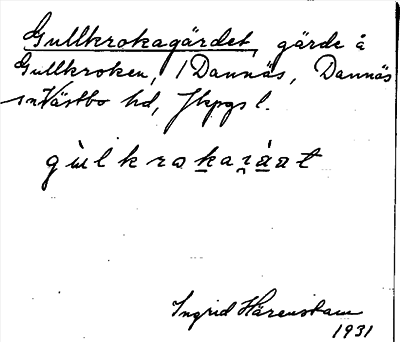 Gullkrokagärdet, gärde å
Gullkroken, 1 Dannäs, Dannäs
sn Västbo hd, Jkpgs l.
Ingrid Härenstam
1931